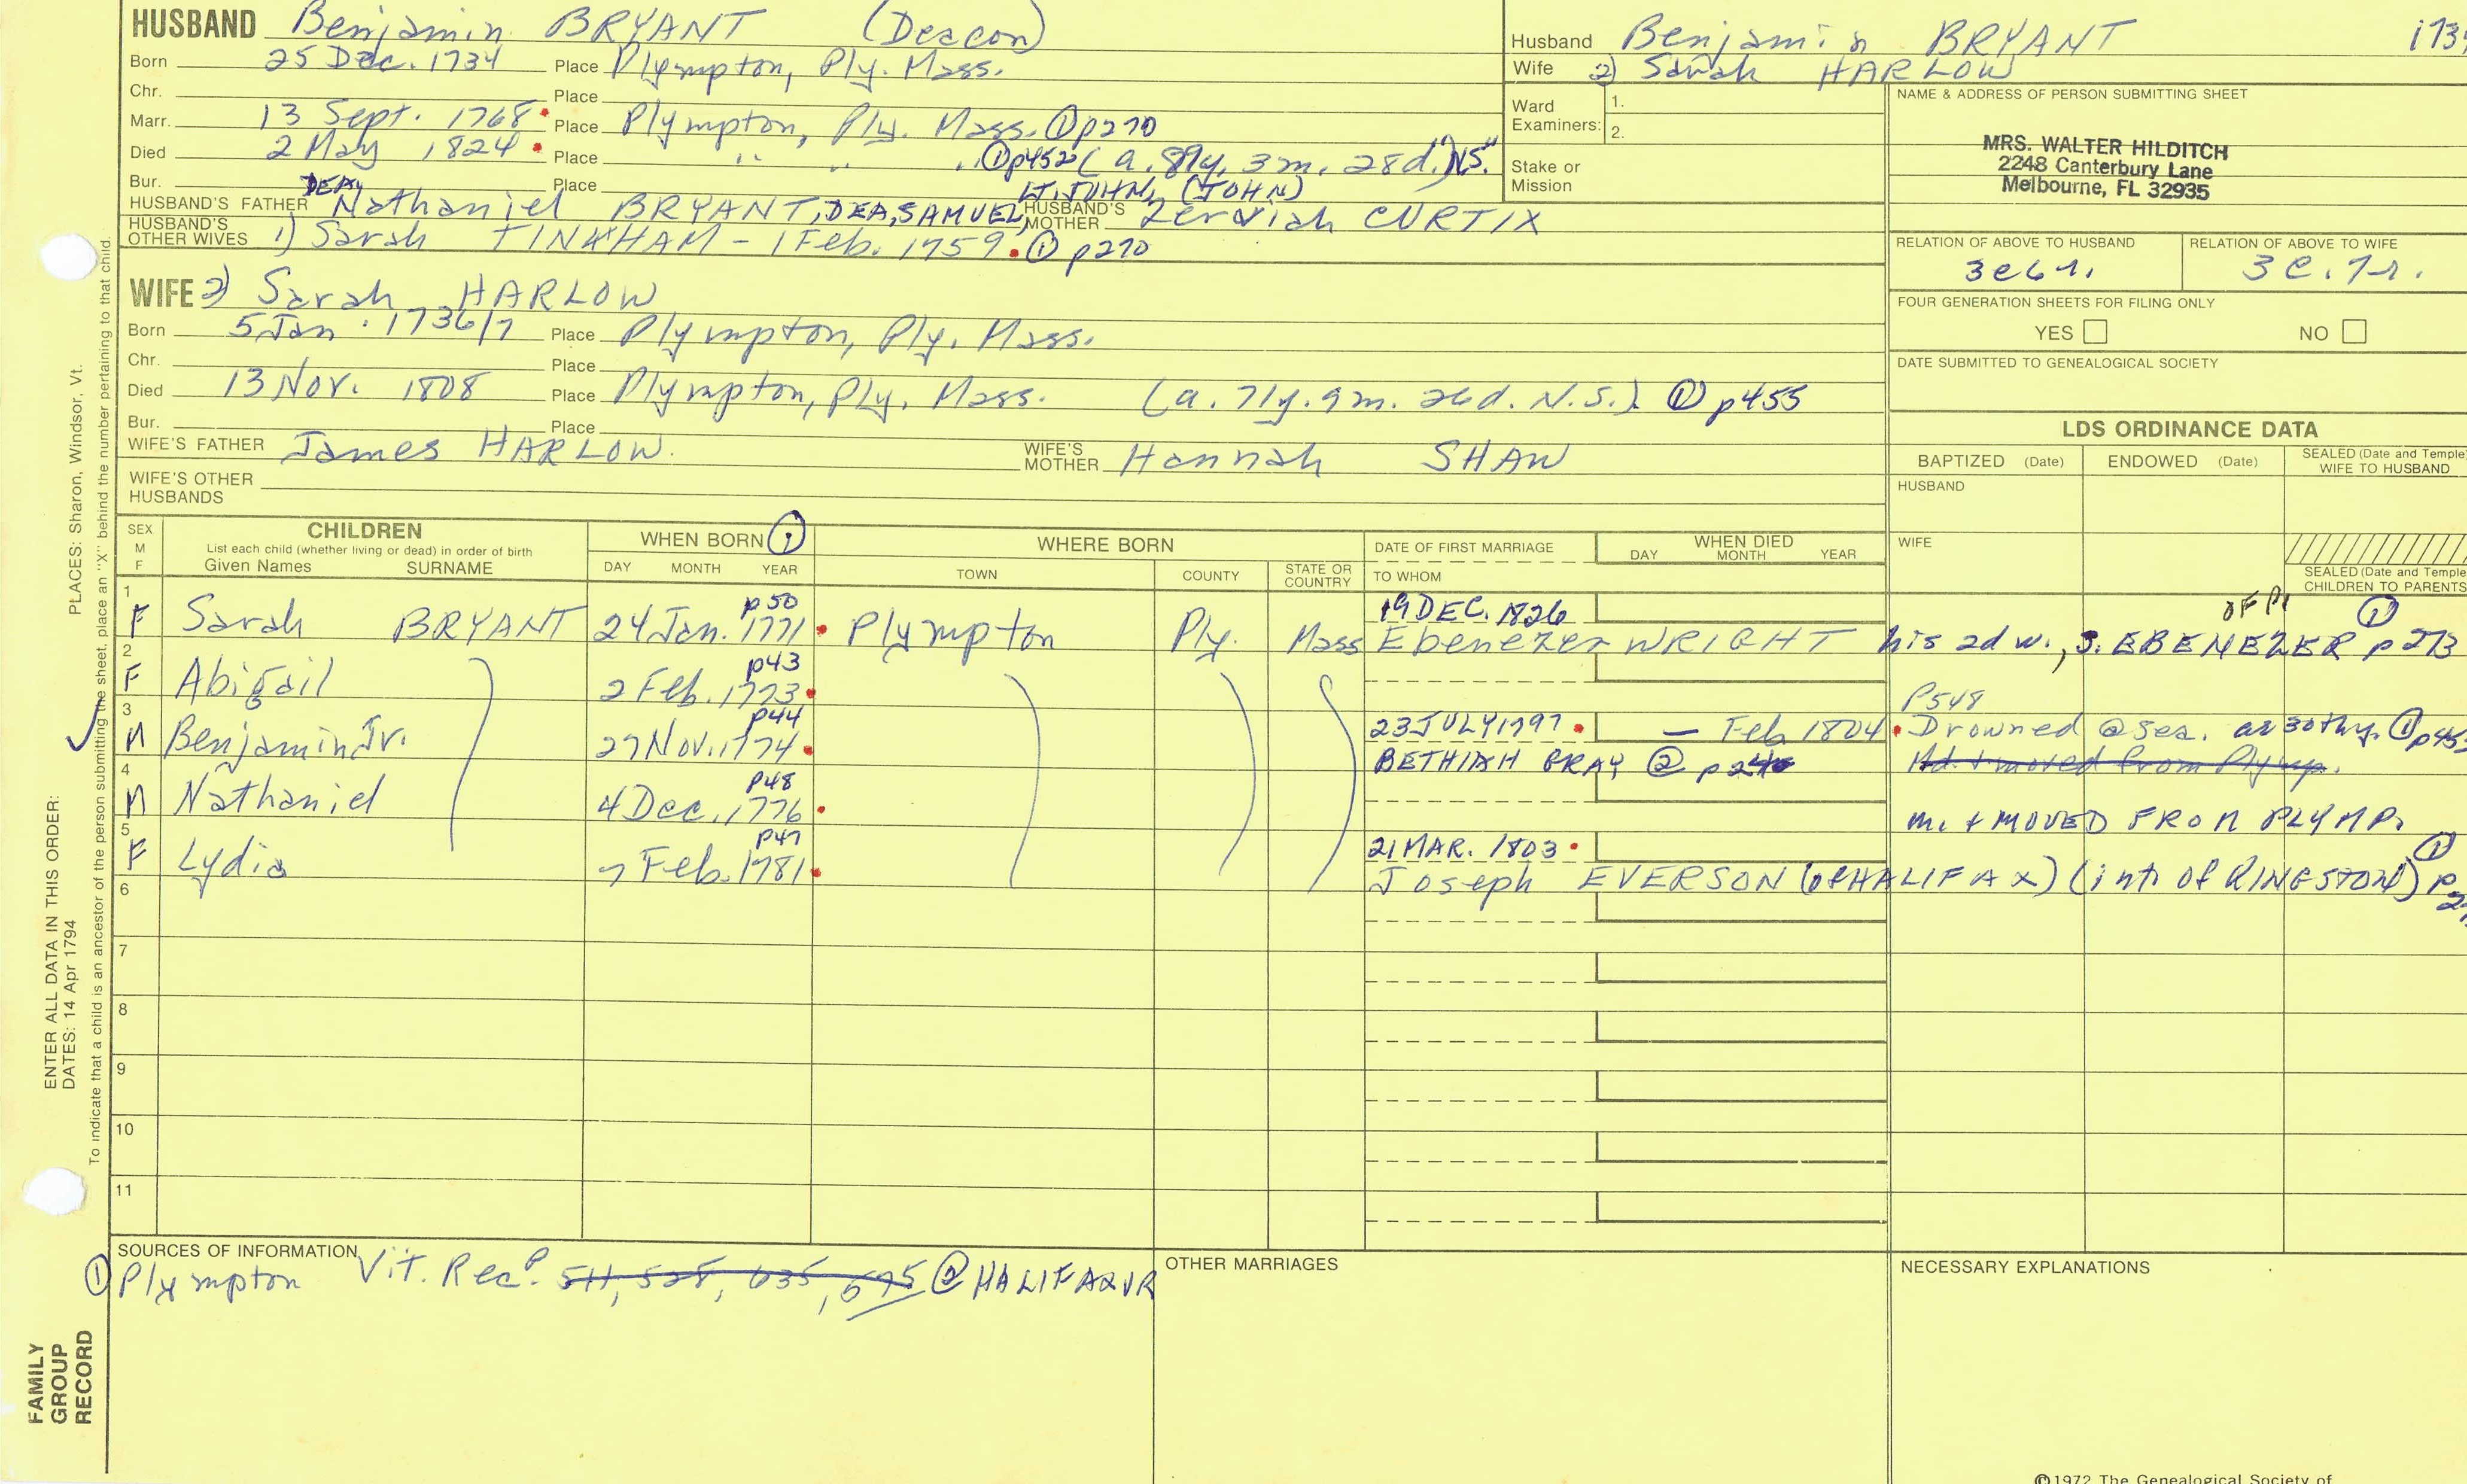 HUSBAND Benjamin BRYANT (Deacon)
Born 25 Dec. 1734 Place Plympton, Ply. Mass.
Chr. Place
Marr. 13 Sept. 1768 Place Plympton, Ply. Mass. ① p270
Died 2 May 1824 Place " " " ① p452 (a. 89y. 3m. 28d.) N.S."
Bur. Place
HUSBAND'S FATHER DEA. Nathaniel BRYANT, DEA. SAMUEL, LT. JOHN, (JOHN) HUSBAND'S MOTHER Zerviah CURTIX
HUSBAND'S OTHER WIVES 1) Sarah TINKHAM - 1 Feb. 1759. ① p270
WIFE 2) Sarah HARLOW
Born 5 Jan. 1736/7 Place Plympton, Ply. Mass.
Chr. Place
Died 13 Nov. 1808 Place Plympton, Ply. Mass. (a. 71y. 9m. 26d. N.S.) ① p455
Bur. Place
WIFE'S FATHER James HARLOW. WIFE'S MOTHER Hannah SHAW
WIFE'S OTHER HUSBANDS
Husband Benjamin BRYANT
Wife 2) Sarah HARLOW
Ward Examiners: 1.
2.
Stake or Mission
NAME & ADDRESS OF PERSON SUBMITTING SHEET
MRS. WALTER HILDITCH
2248 Canterbury Lane
Melbourne, FL 32935
RELATION OF ABOVE TO HUSBAND RELATION OF ABOVE TO WIFE
3c6r. 3c.7r.
FOUR GENERATION SHEETS FOR FILING ONLY
YES NO
DATE SUBMITTED TO GENEALOGICAL SOCIETY
LDS ORDINANCE DATA
BAPTIZED (Date) ENDOWED (Date) SEALED (Date and Temple WIFE TO HUSBAND
HUSBAND
WIFE
SEALED (Date and Temple CHILDREN TO PARENTS
SEX M F
CHILDREN
List each child (whether living or dead) in order of birth
Given Names SURNAME
WHEN BORN ①
DAY MONTH YEAR
WHERE BORN
TOWN COUNTY STATE OR COUNTRY
DATE OF FIRST MARRIAGE
TO WHOM
WHEN DIED
DAY MONTH YEAR
1 F Sarah BRYANT 24 Jan. 1771 p50 Plympton Ply. Mass 19 DEC. 1826
Ebenezer WRIGHT his 2d w., S. EBENEZER OF Pl ① p273
2 F Abigail 2 Feb. 1773 p43
3 M Benjamin Jr. 27 Nov. 1774 p44 23 JULY 1797 — Feb 1804 P548 Drowned @ sea. ae 30thy. ①
BETHIAH BRAY ② Md. + moved from Plymp.
4 M Nathaniel 4 Dec. 1776 p48 m. + MOVED FROM PLYMP.
5 F Lydia 7 Feb. 1781 p47 21 MAR. 1803
Joseph EVERSON (of HALIFAX) (int. of KINGSTON) ①
6
7
8
9
10
11
SOURCES OF INFORMATION
① Plympton Vit. Rec. p. 511, 528, 635, 595 ② HALIFAX VR
OTHER MARRIAGES
NECESSARY EXPLANATIONS
©1972 The Genealogical Society of
PLACES: Sharon, Windsor, Vt.
ENTER ALL DATA IN THIS ORDER:
DATES: 14 Apr 1794
To indicate that a child is an ancestor of the person submitting the sheet, place an "X" behind the number pertaining to that child.
FAMILY
GROUP
RECORD